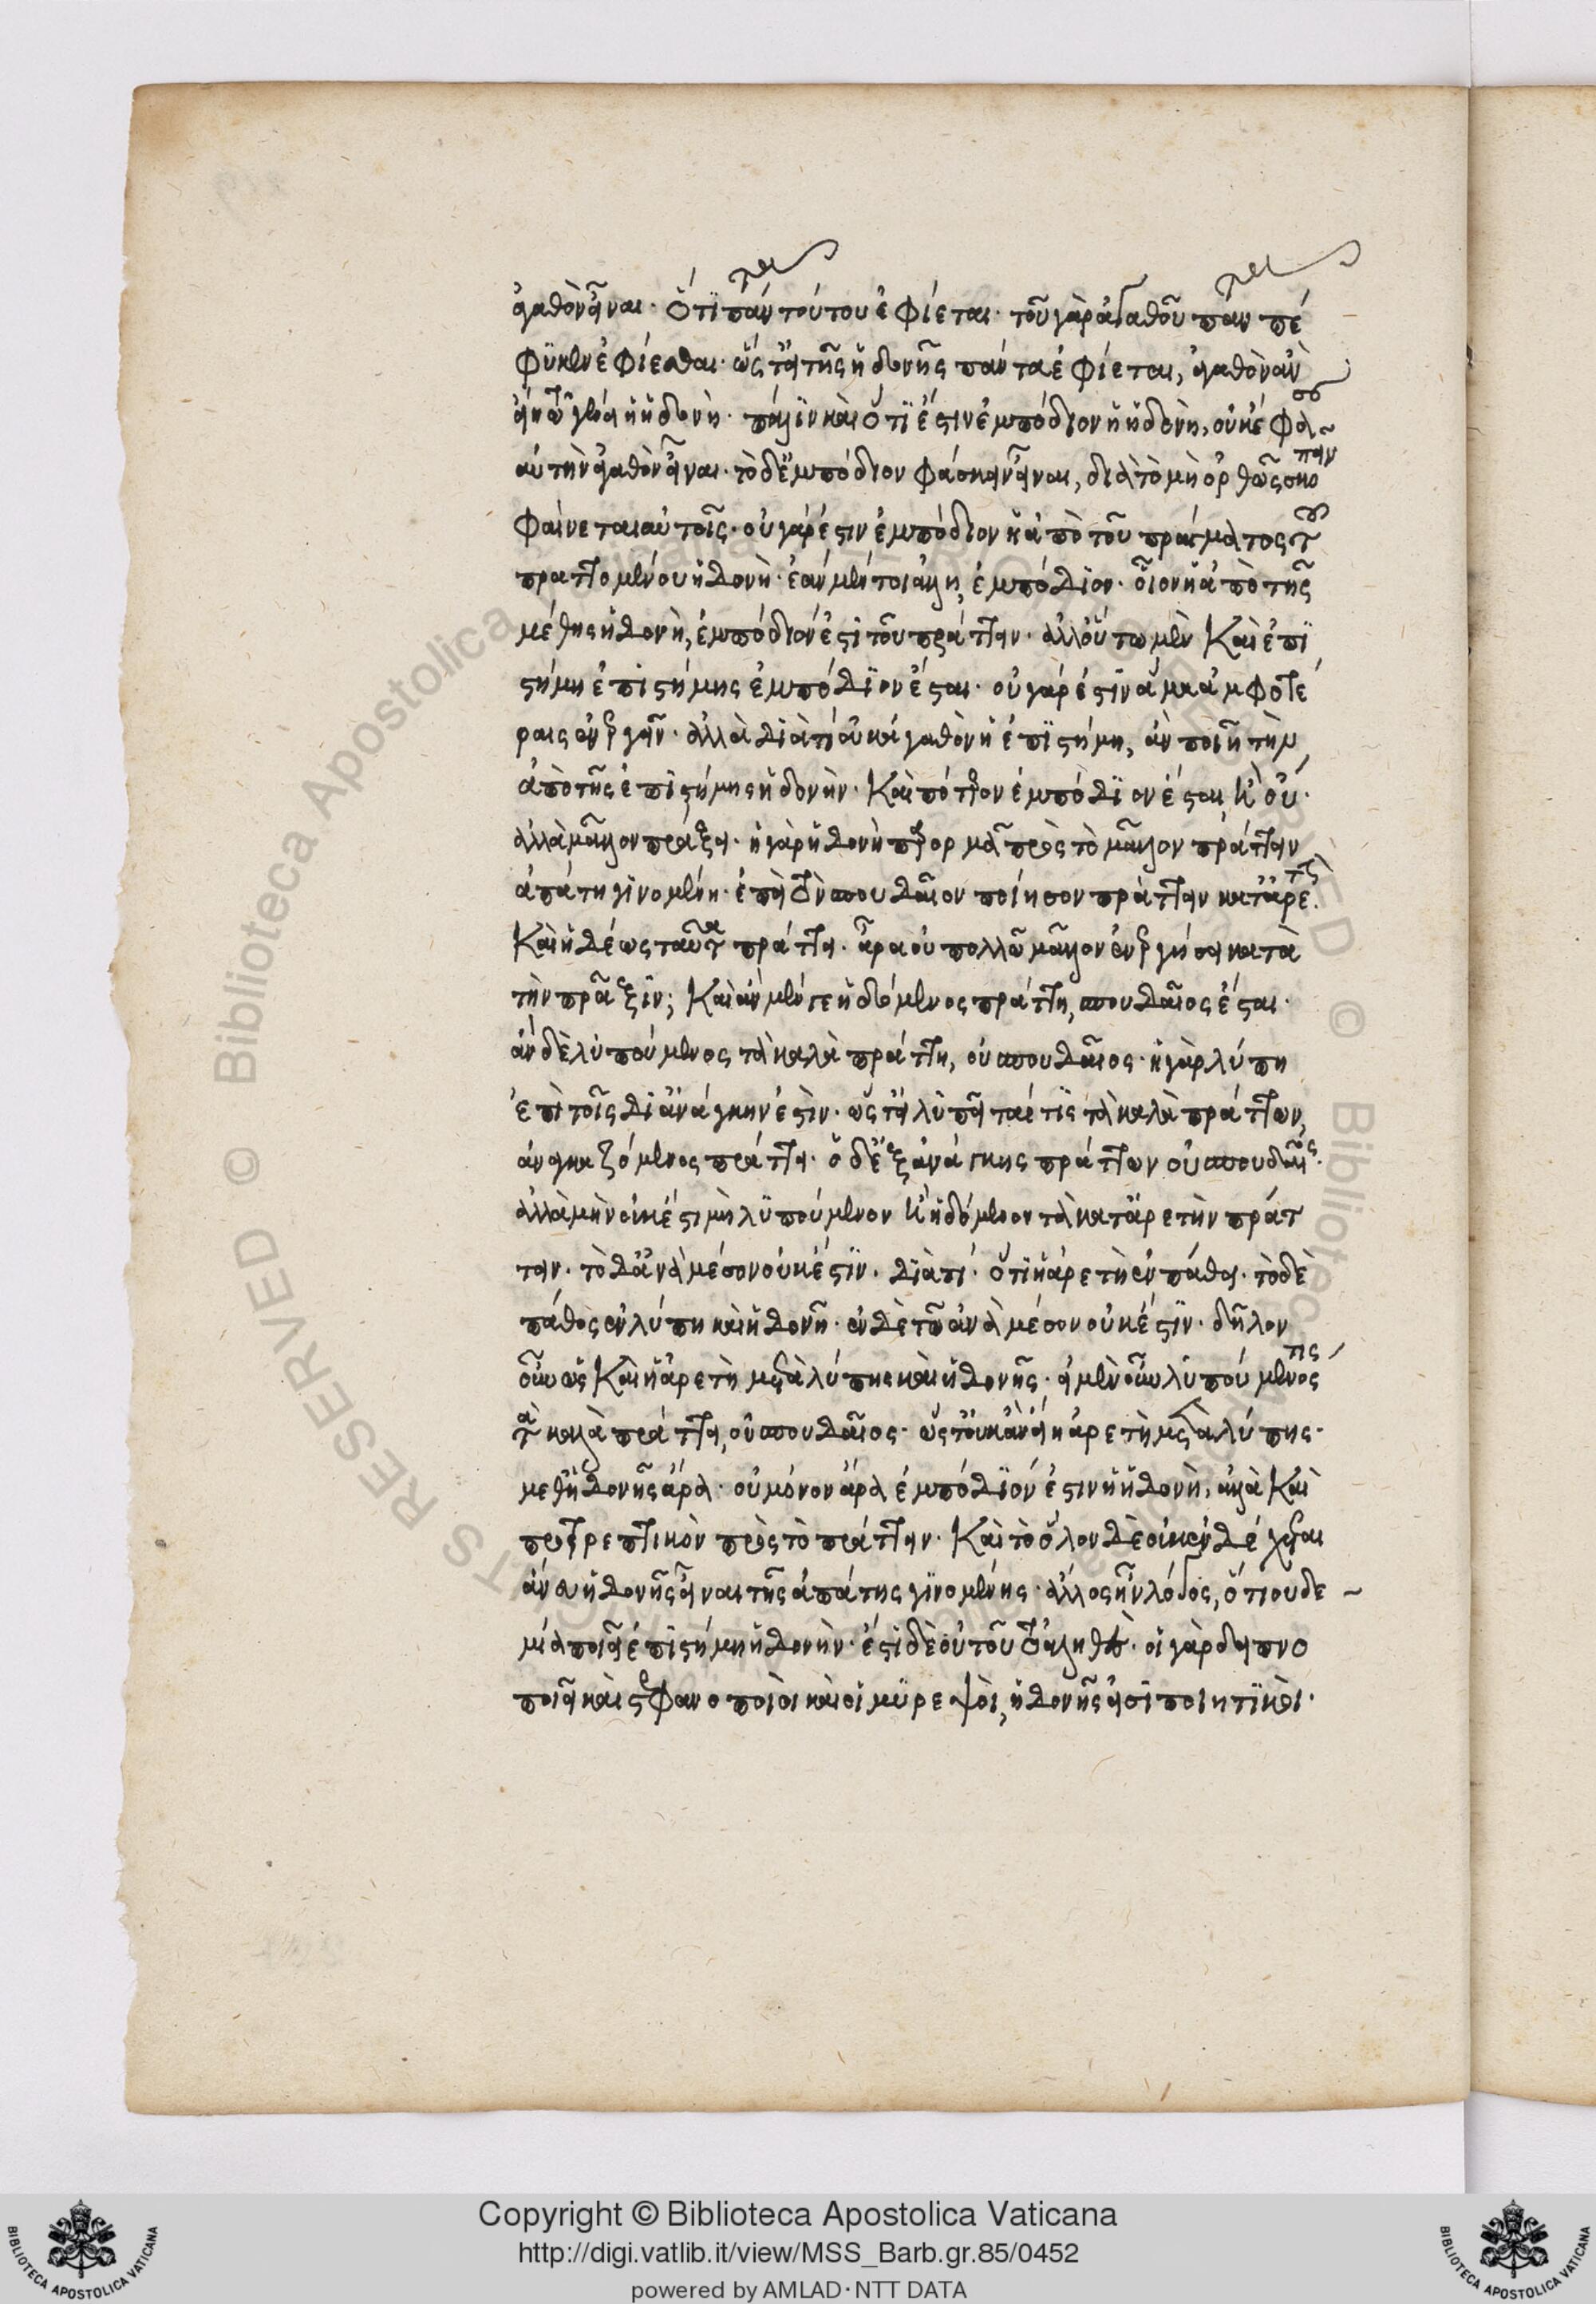 ἀγαθὸν εἶναι. ὅτι πάντα τούτου ἐφίεται. τοῦ γὰρ ἀγαθοῦ πάντα πέ
φυκεν ἐφίεσθαι. ὥστ' εἰ τῆς ἡδονῆς πάντα ἐφίεται, ἀγαθὸν ἂν
εἴη τῷ γένει ἡ ἡδονή. πάλιν καὶ ὅτι ἐστὶν ἐμπόδιον ἡ ἡδονὴ, οὐκ ἔφασαν
αὐτὴν ἀγαθὸν εἶναι. τὸ δ' ἐμπόδιον φάσκειν εἶναι, διὰ τὸ μὴ ὀρθῶς σκοπεῖν
φαίνεται αὐτοῖς. οὐ γάρ ἐστιν ἐμπόδιον ἡ ἀπὸ τοῦ πράγματος τοῦ
πραττομένου ἡδονή. ἐὰν μέντοι ἄλλη, ἐμπόδιον. οἷον ἡ ἀπὸ τῆς
μέθης ἡδονὴ, ἐμπόδιόν ἐστι τοῦ πράττειν. ἀλλ' οὕτω μὲν καὶ ἐπι
στήμη ἐπιστήμης ἐμπόδιον ἔσται. οὐ γάρ ἐστιν ἅμα ἀμφοτέ
ραις ἐνεργεῖν. ἀλλὰ διὰ τί οὐκ ἀγαθὸν ἡ ἐπιστήμη, ἂν ποιῇ τὴν
ἀπὸ τῆς ἐπιστήμης ἡδονήν. καὶ πότερον ἐμπόδιον ἔσται, ἢ οὔ.
ἀλλὰ μᾶλλον πράξει. ἡ γὰρ ἡδονὴ παρορμᾷ πρὸς τὸ μᾶλλον πράττειν
ἀπ' αὐτῆς γινομένη. ἐπεὶ τὸν σπουδαῖον ποίησον πράττειν τὰ κατ' ἀρετὴν
καὶ ἡδέως ταῦτα πράττει. ἆρα οὐ πολλῷ μᾶλλον ἐνεργήσει κατὰ
τὴν πρᾶξιν; καὶ ἂν μέν γε ἡδόμενος πράττῃ, σπουδαῖος ἔσται.
ἂν δὲ λυπούμενος τὰ καλὰ πράττῃ, οὐ σπουδαῖος. ἡ γὰρ λύπη
ἐπὶ τοῖς δι' ἀνάγκην ἐστίν. ὥστ' εἰ λυπεῖταί τις τὰ καλὰ πράττων,
ἀναγκαζόμενος πράττει. ὁ δ' ἐξ ἀνάγκης πράττων οὐ σπουδαῖος.
ἀλλὰ μὴν οὐκ ἔστι μὴ λυπούμενον ἢ ἡδόμενον τὰ κατ' ἀρετὴν πράτ
τειν. τὸ δ' ἀνὰ μέσον οὐκ ἔστιν. διὰ τί. ὅτι ἡ ἀρετὴ ἐν πάθει. τὸ δὲ
πάθος ἐν λύπῃ καὶ ἡδονῇ. ἐν δὲ τῷ ἀνὰ μέσον οὐκ ἔστιν. δῆλον
οὖν ὡς καὶ ἡ ἀρετὴ μετὰ λύπης καὶ ἡδονῆς. εἰ μὲν οὖν λυπούμενός τις
τὰ καλὰ πράττει, οὐ σπουδαῖος. ὥστ' οὐκ ἂν εἴη ἀρετὴ μετὰ λύπης.
μεθ' ἡδονῆς ἄρα. οὐ μόνον ἄρα ἐμπόδιόν ἐστιν ἡ ἡδονὴ, ἀλλὰ καὶ
προτρεπτικὸν πρὸς τὸ πράττειν. καὶ τὸ ὅλον δὲ οὐκ ἐνδέχεται
ἄνευ ἡδονῆς εἶναι τῆς ἀπ' αὐτῆς γινομένης. ἄλλος ἦν λόγος, ὅτι οὐδε
μία ποιεῖ ἐπιστήμη ἡδονήν. ἔστι δὲ οὐ τοῦτο ἀληθές. οἱ γὰρ δειπνο
ποιοὶ καὶ στεφανοποιοὶ καὶ οἱ μυρεψοὶ, ἡδονῆς εἰσὶ ποιητικοί.
Copyright © Biblioteca Apostolica Vaticana
http://digi.vatlib.it/view/MSS_Barb.gr.85/0452
powered by AMLAD·NTT DATA